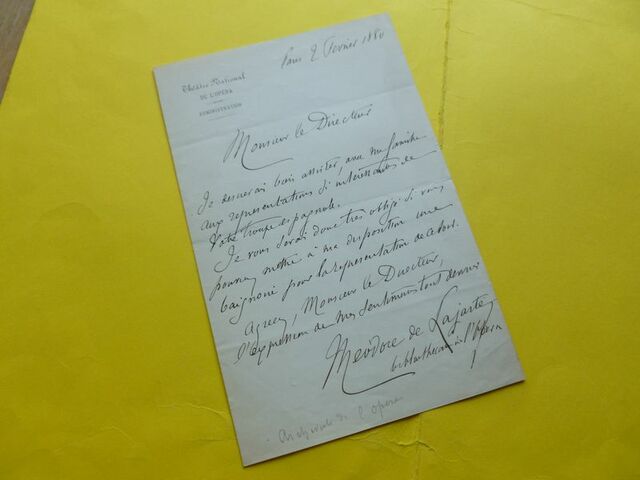 Paris 2 Fevrier 1880
Théâtre National
DE L'OPÉRA
ADMINISTRATION
Monsieur le Directeur
Je desirerais bien assister, avec ma famille
aux representations si interessantes de
Votre troupe espagnole.
Je vous serai donc très obligé si vous
pouviez mettre à ma disposition une
baignoire pour la représentation de ce soir.
Agréez, Monsieur le Directeur,
l'expression de mes sentiments tout devoués
Theodore de Lajarte
bibliothécaire à l'Opéra
Archiviste de l'opera